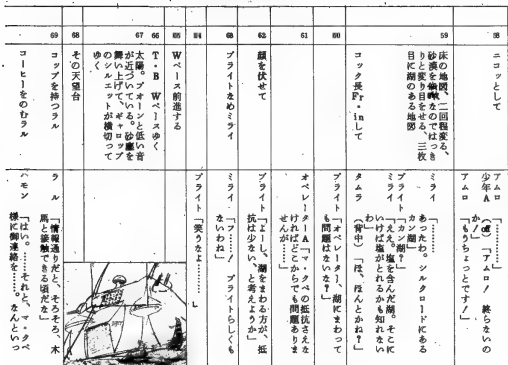 58
ニコッとして
アムロ「………」
少年A(声)「アムロ! 終らないの
か!」
アムロ「もうちょっとです!」
59
床の地図、二回程変る、
砂漠を なのではっき
りと変り目をせる、三枚
目に湖のある地図
ミライ
あったわ。シルクロードにある
カン湖」
ブライト「カン湖?」
ミライ「ええ。塩を含んだ湖。そこに
いけば塩がとれるかも知れない
わ」
コック長Fr・inして
タムラ(背中)「ほ、ほんとかね?」
60
ブライト「オペレーター、湖にまわって
も問題はないな?」
61
オペレーターA「マ・クベの抵抗さえな
ければどこからでも問題ありま
せんが」
62
顔を伏せて
ブライト「よーし、湖をまわる方が、抵
抗は少ない、と考えようか」
63
ブライトためミライ
ミライ「フ……! ブライトらしくも
ないわね」
64
ブライト「笑うなよ………」
65
Wベース前進する
66
T・B Wベースゆく
67
太陽。ブオーンと低い音
が近づいている。砂塵を
舞い上げて、ギャロップ
のシルエットが横切って
ゆく
68
その天望台
69
コップを持つラル
ラル「情報通りだと、そろそろ、木
馬と接触できる頃だな」
コーヒーをのむラル
ハモン「はい。……それと、マ・クベ
様に御連絡を……。なんといっ